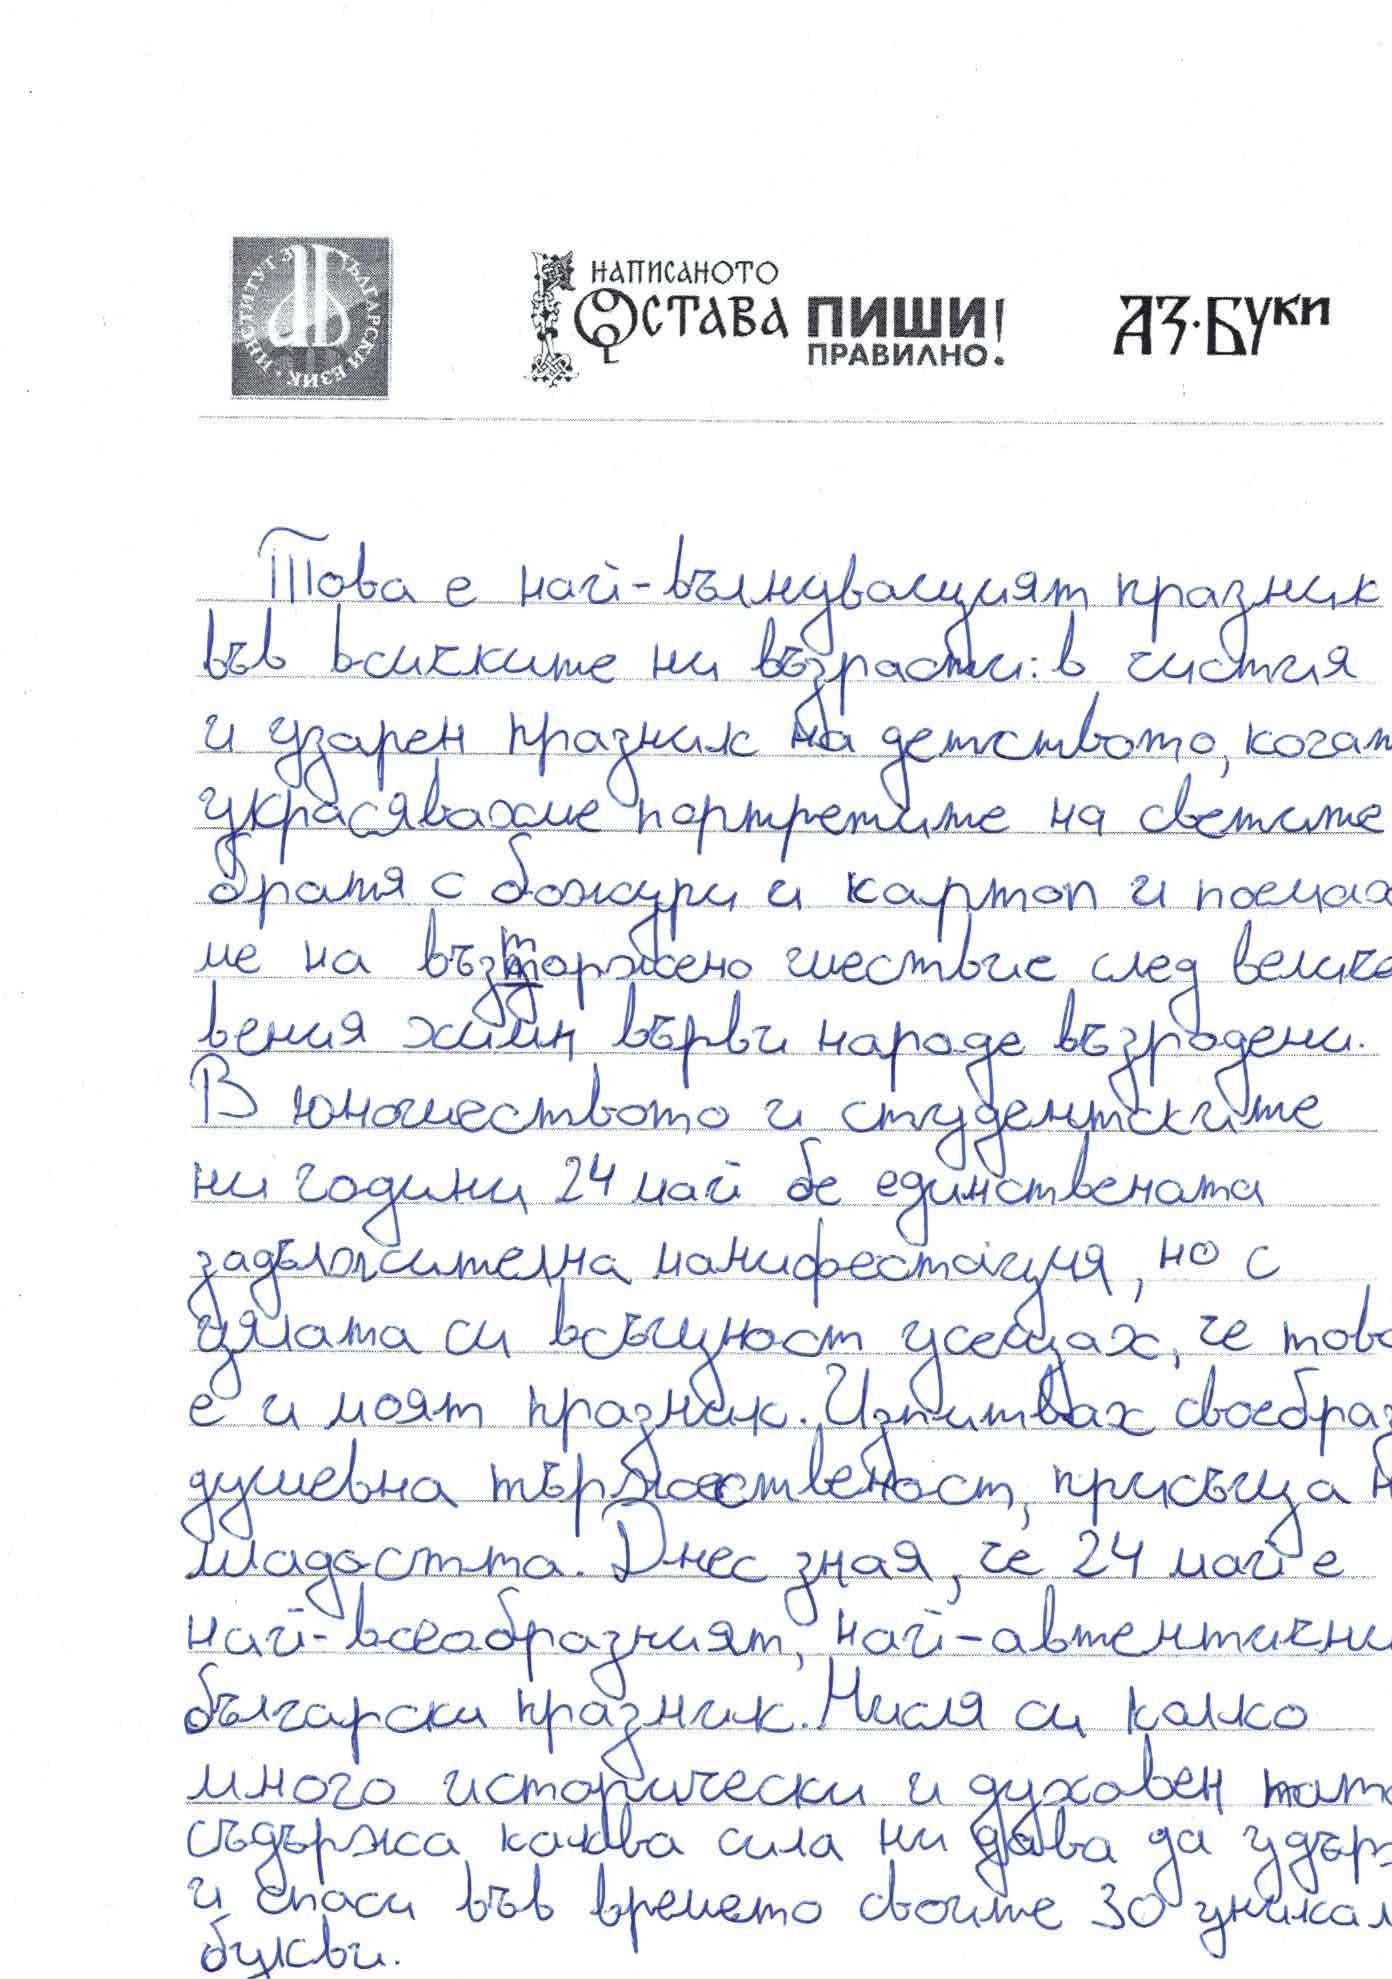 ИНСТИТУТ ЗА БЪЛГАРСКИ ЕЗИК
НАПИСАНОТО
ОСТАВА
ПИШИ!
ПРАВИЛНО.
АЗ·БУКИ
Това е най-вълнуващият празник
във всичките ни възрасти: в чистия
и узарен празник на детството, когат
украсявахме портретите на светите
братя с божури и картоп и поемах
ме на възторжено шествие след величе
вения химн върви народе възродени.
В юношеството и студентските
ни години 24 май бе единствената
задължителна манифестация, но с
цялата си всъщност усещах, че това
е и моят празник. Изпитвах своебраз
душевна тържественост, присъща н
младостта. Днес зная, че 24 май е
най-всеобразният, най-автентични
български празник. Мисля си колко
много исторически и духовен
съдържа каква сила ни дава да удърж
и спаси във времето своите 30 уникал
букви.